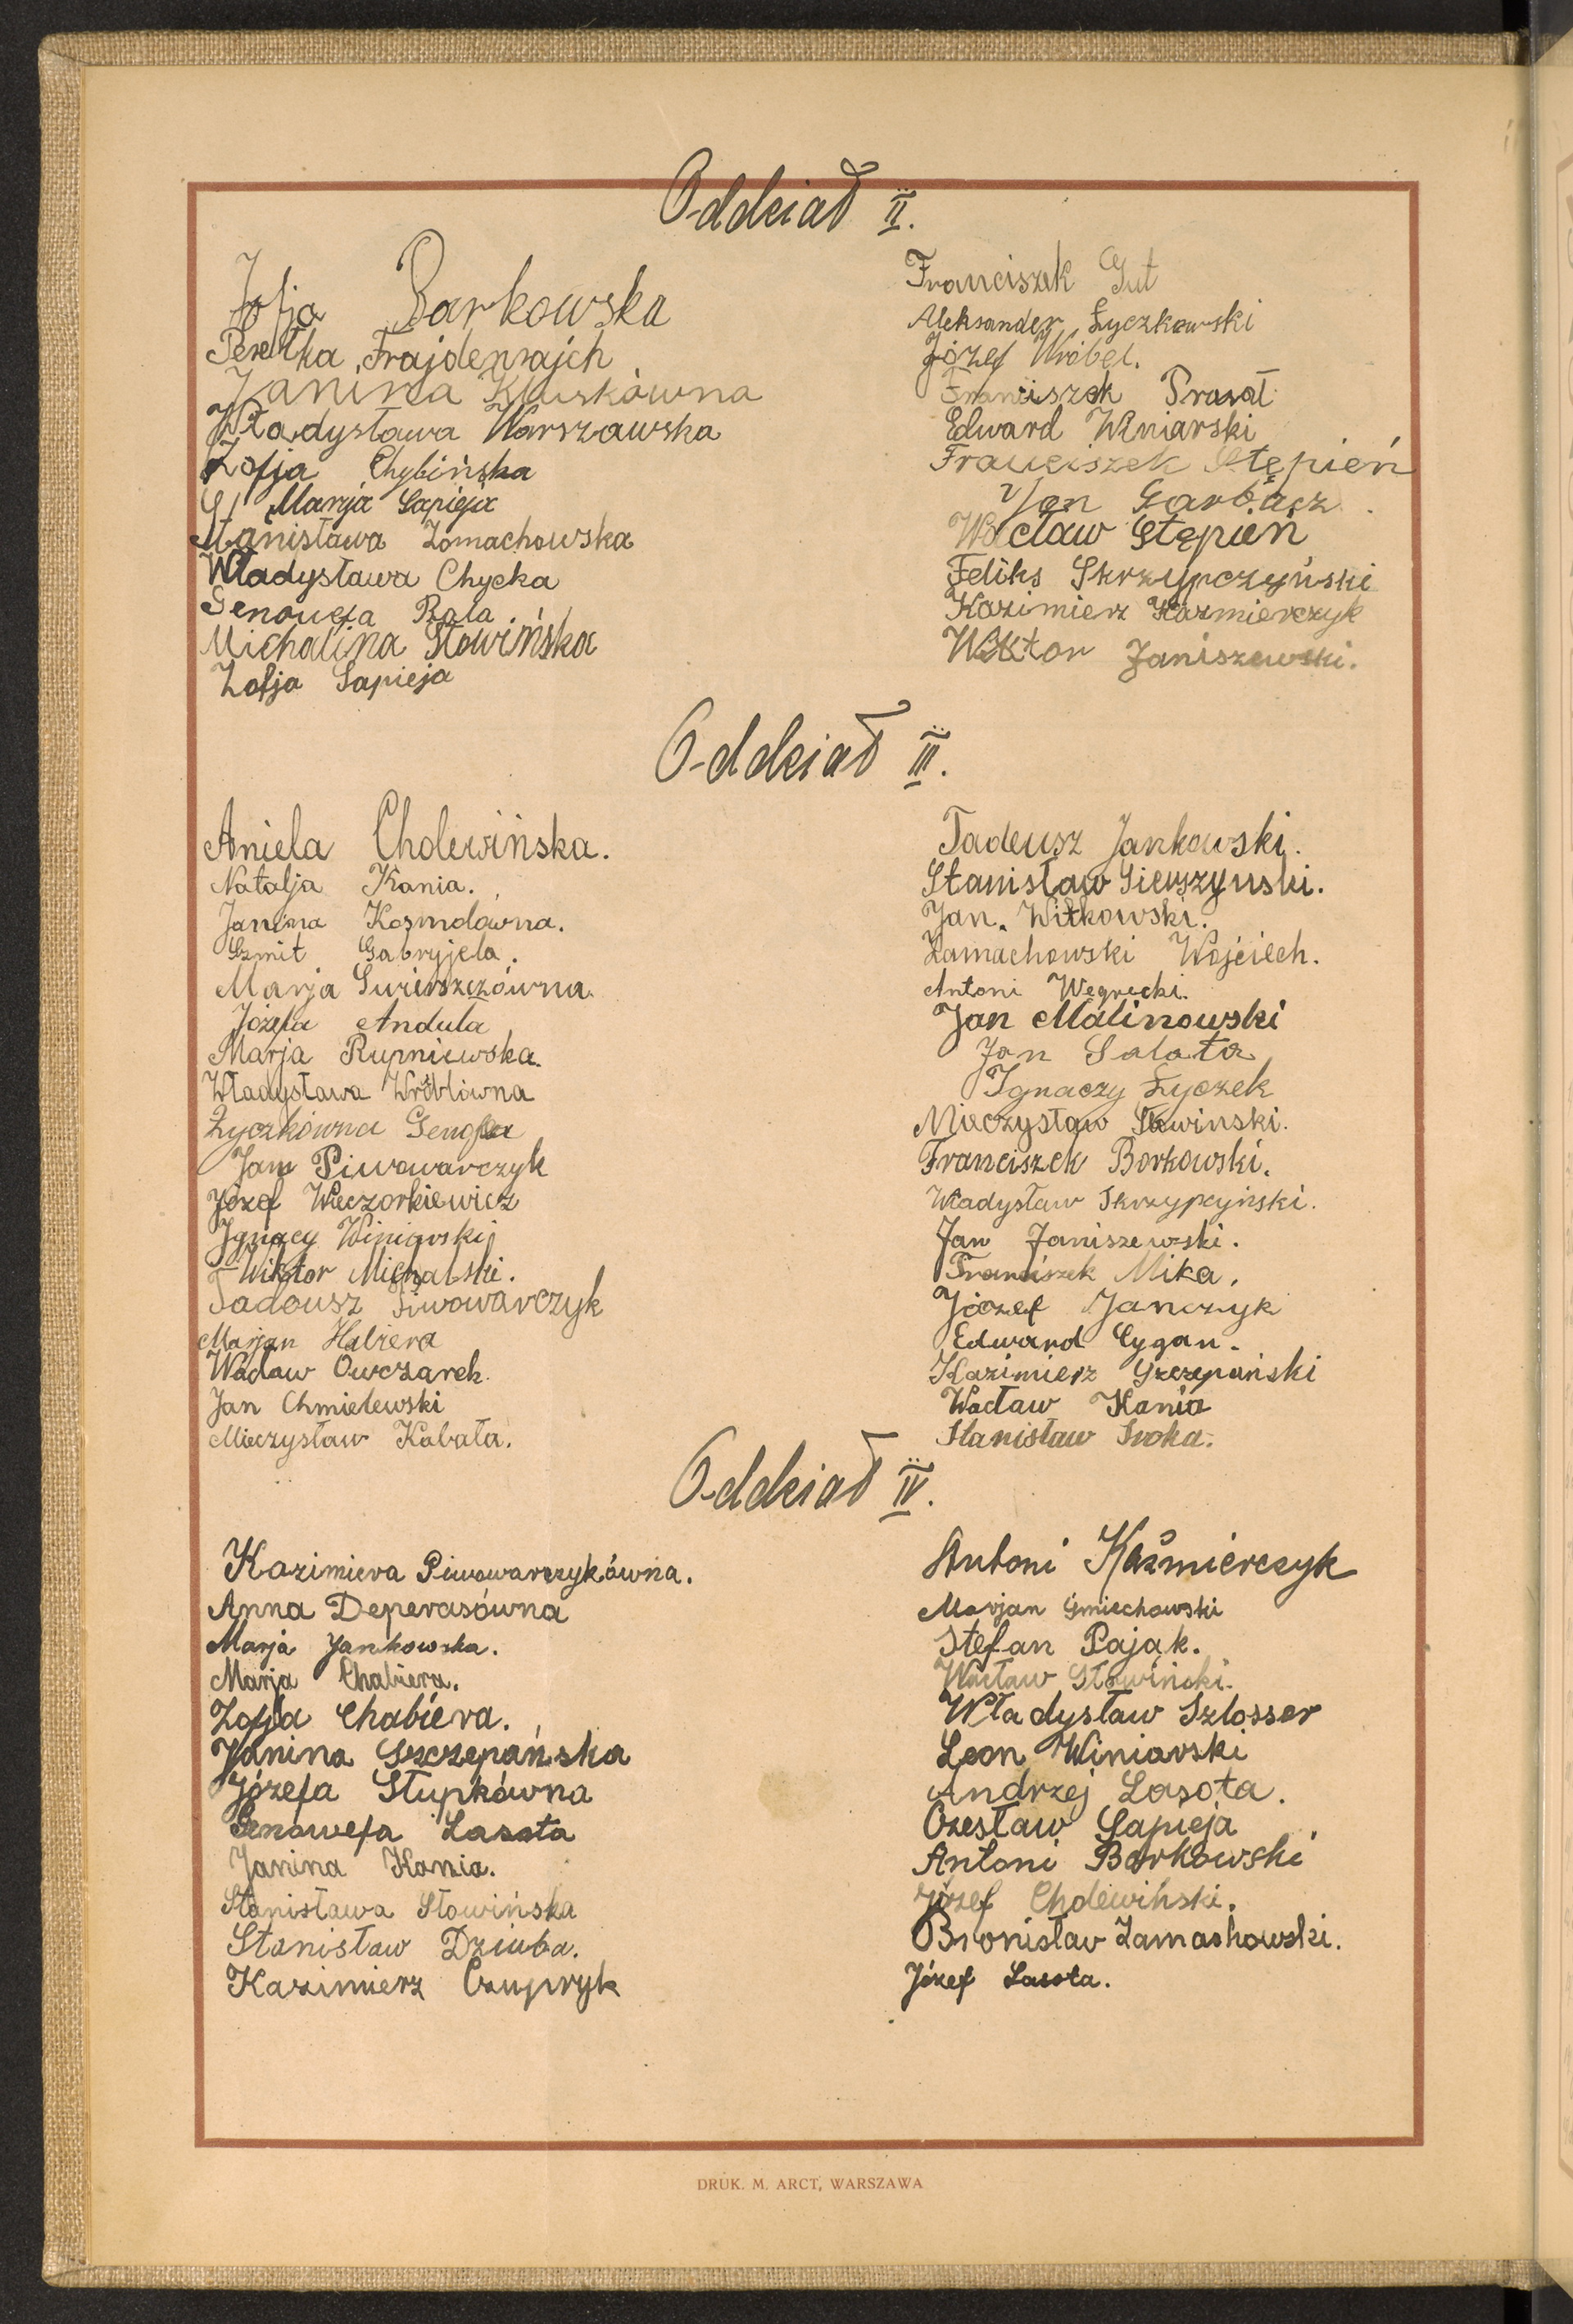 Oddział II.
Zofja Barkowska
Peretka Frajdenrajch
Janina
Władysława Warszawska
Zofja Chybińska
Marja Sapieja
Stanisława Zomachowska
Władysława Chycka
Genowefa Rola
Michalina Słowińska
Zofja Sapieja
Franciszek Gut
Aleksander Łyczkowski
Józef Wróbel.
Franciszek
Edward Winiarski
Franciszek Stępień
Jan Garbacz.
Wacław Stępień
Feliks Skrzypczyński
Kazimierz Kaźmierczyk
Wiktor Janiszewski.
Oddział III.
Aniela Cholewińska.
Natalja Kania.
Janina Kozmdówna.
Szmit Gabryjela.
Marja Swierszczówna.
Józefa Andula
Marja Rupniewska.
Władysława Wróblówna
Łyczkówna Genofea
Jan Piwowarczyk
Józef Wieczorkiewicz
Ignacy Winiarski
Wiktor Michalski.
Tadeusz Piwowarczyk
Marjan Habiera
Wacław Owczarek.
Jan Chmielewski
Mieczysław Kabała.
Tadeusz Jankowski.
Stanisław Sierszyński.
Jan. Witkowski.
Zamachowski Wojciech.
Antoni Węgrecki.
Jan Malinowski
Jan Salata
Ignaczy Łyczek
Mieczysław Słowinski.
Franciszek Borkowski.
Władysław Skrzypczyński.
Jan Janiszewski.
Franciszek Mika.
Józef Janczyk
Edward Cygan.
Kazimierz Szczepański
Wacław Kania
Stanisław Sroka.
Oddział IV.
Kazimiera Piwowarczykówna.
Anna Deperasówna
Marja Jankowska.
Marja Chabiera.
Zofja Chabiera.
Janina Szczepańska
Józefa Słupkówna
Genowefa Lasota
Janina Kania.
Stanisława Słowińska
Stanisław Dziuba.
Kazimierz Czupryk
Antoni Kaźmierczyk
Marjan Śmiechowski
Stefan Pająk.
Wacław Słowiński.
Władysław Szlosser
Leon Winiarski
Andrzej Lasota.
Czesław Sapieja
Antoni Borkowski
Józef Cholewiński.
Bronisław Zamachowski.
Józef Lasota.
DRUK. M. ARCT, WARSZAWA